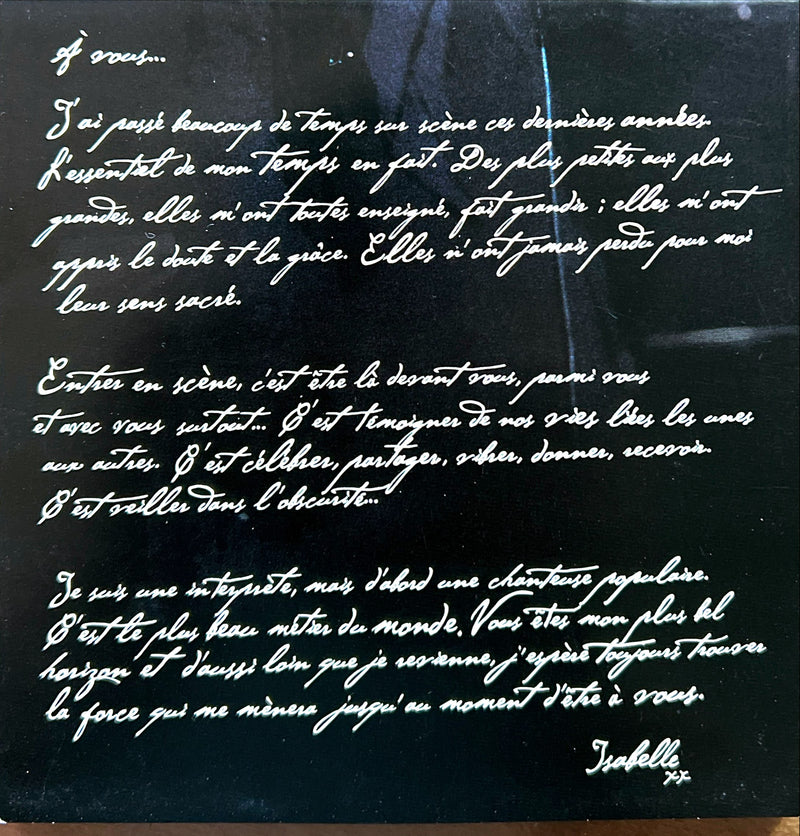 À vous...
J'ai passé beaucoup de temps sur scène ces dernières années.
L'essentiel de mon temps en fait. Des plus petites aux plus
grandes, elles m'ont toutes enseigné, fait grandir ; elles m'ont
appris le doute et la grâce. Elles n'ont jamais perdu pour moi
leur sens sacré.
Entrer en scène, c'est être là devant vous, parmi vous
et avec vous surtout... C'est témoigner de nos vies liées les unes
aux autres. C'est célébrer, partager, vibrer, donner, recevoir.
C'est veiller dans l'obscurité...
Je suis une interprète, mais d'abord une chanteuse populaire.
C'est le plus beau métier du monde. Vous êtes mon plus bel
horizon et d'aussi loin que je revienne, j'espère toujours trouver
la force qui me mènera jusqu'au moment d'être à vous.
Isabelle
xx